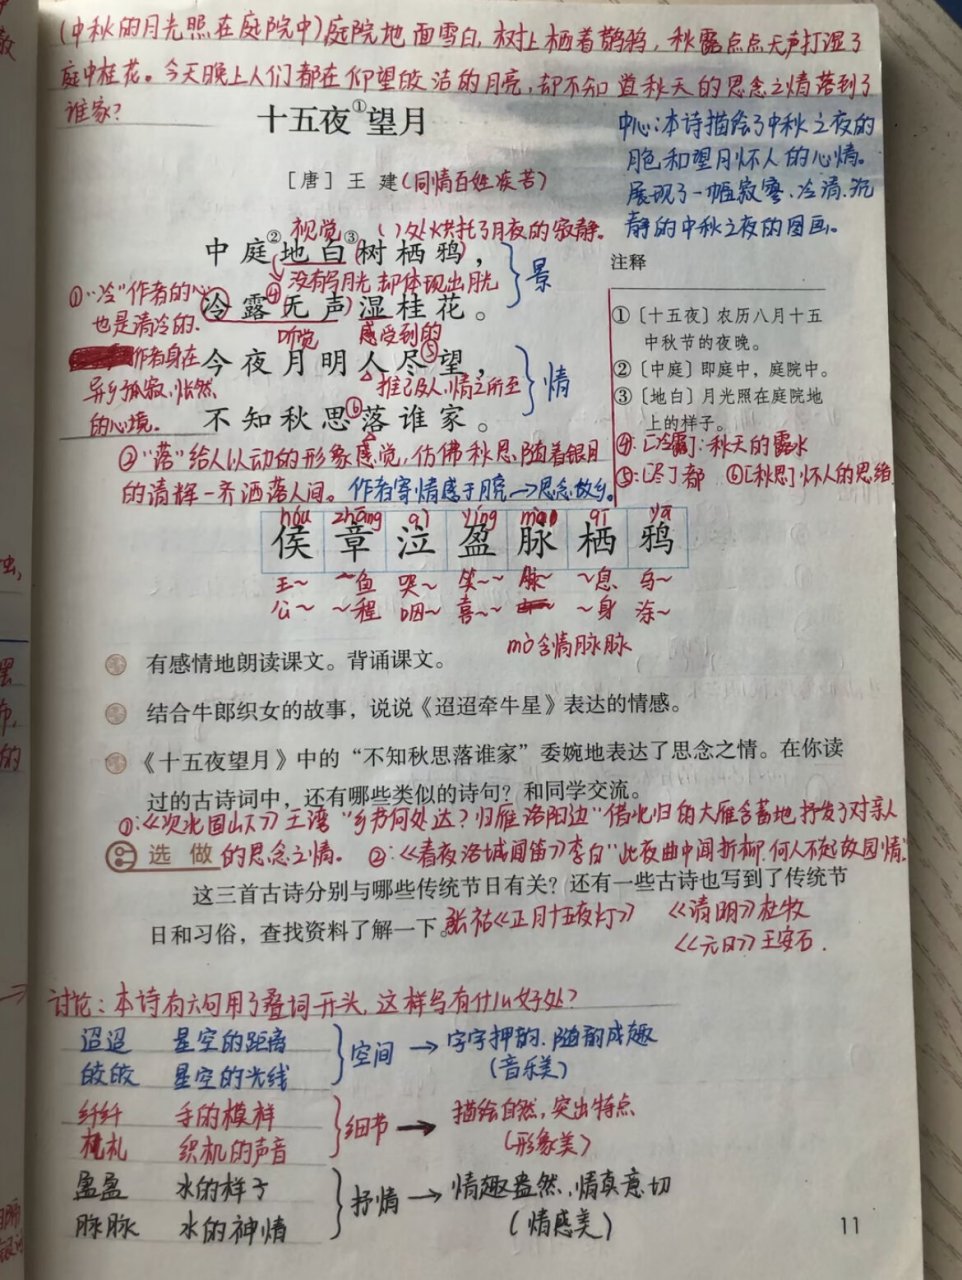 (中秋的月光照在庭院中)庭院地面雪白,树上栖着鹊鸦,秋露点点无声打湿了
庭中桂花。今天晚上人们都在仰望皎洁的月亮,却不知道秋天的思念之情落到了
谁家?
十五夜①望月
[唐] 王 建(同情百姓疾苦)
中心:本诗描绘了中秋之夜的
月色和望月怀人的心情。
展现了一幅寂寥、冷清、沉
静的中秋之夜的图画。
视觉 ( )处烘托了月夜的寂静。
中庭②地白③(树栖鸦),
没有写月光却体现出月光
④冷露无声湿桂花。
听觉 感受到的
景
①“冷”作者的心
也是清冷的、
作者身在
异乡孤寂、怅然
的心境。
今夜月明人尽⑤望,
推己及人,情之所至
不知秋思⑥落谁家。
情
②“落”给人以动的形象感觉,仿佛秋思随着银月
的清辉一齐洒落人间。作者寄情感于月亮→思念故乡。
注释
①〔十五夜〕农历八月十五
中秋节的夜晚。
②〔中庭〕即庭中,庭院中。
③〔地白〕月光照在庭院地
上的样子。
④:〔冷露〕:秋天的露水
⑤:〔尽〕都 ⑥〔秋思〕怀人的思绪
hóu zhāng qì yíng mài qī yā
侯章泣盈脉栖鸦
王~ ~鱼 哭~ 笑~~ 脉~ ~息 乌~
公~ ~程 咽~ 喜~~ ~身 涂~
mò 含情脉脉
有感情地朗读课文。背诵课文。
结合牛郎织女的故事,说说《迢迢牵牛星》表达的情感。
《十五夜望月》中的“不知秋思落谁家”委婉地表达了思念之情。在你读
过的古诗词中,还有哪些类似的诗句?和同学交流。
①:《次北固山下》王湾“乡书何处达?归雁洛阳边”借北归的大雁含蓄地抒发了对亲人
选做 的思念之情。 ②:《春夜洛城闻笛》李白“此夜曲中闻折柳,何人不起故园情”
这三首古诗分别与哪些传统节日有关?还有一些古诗也写到了传统节
日和习俗,查找资料了解一下。张祜《正月十五夜灯》 《清明》杜牧
《元日》王安石.
讨论:本诗有六句用了叠词开头,这样写有什么好处?
迢迢 星空的距离
皎皎 星空的光线
空间 → 字字押韵、随韵成趣
(音乐美)
纤纤 手的模样
札札 织机的声音
细节 → 描绘自然,突出特点
(形象美)
盈盈 水的样子
脉脉 水的神情
抒情 → 情趣盎然,情真意切
(情感美)
11